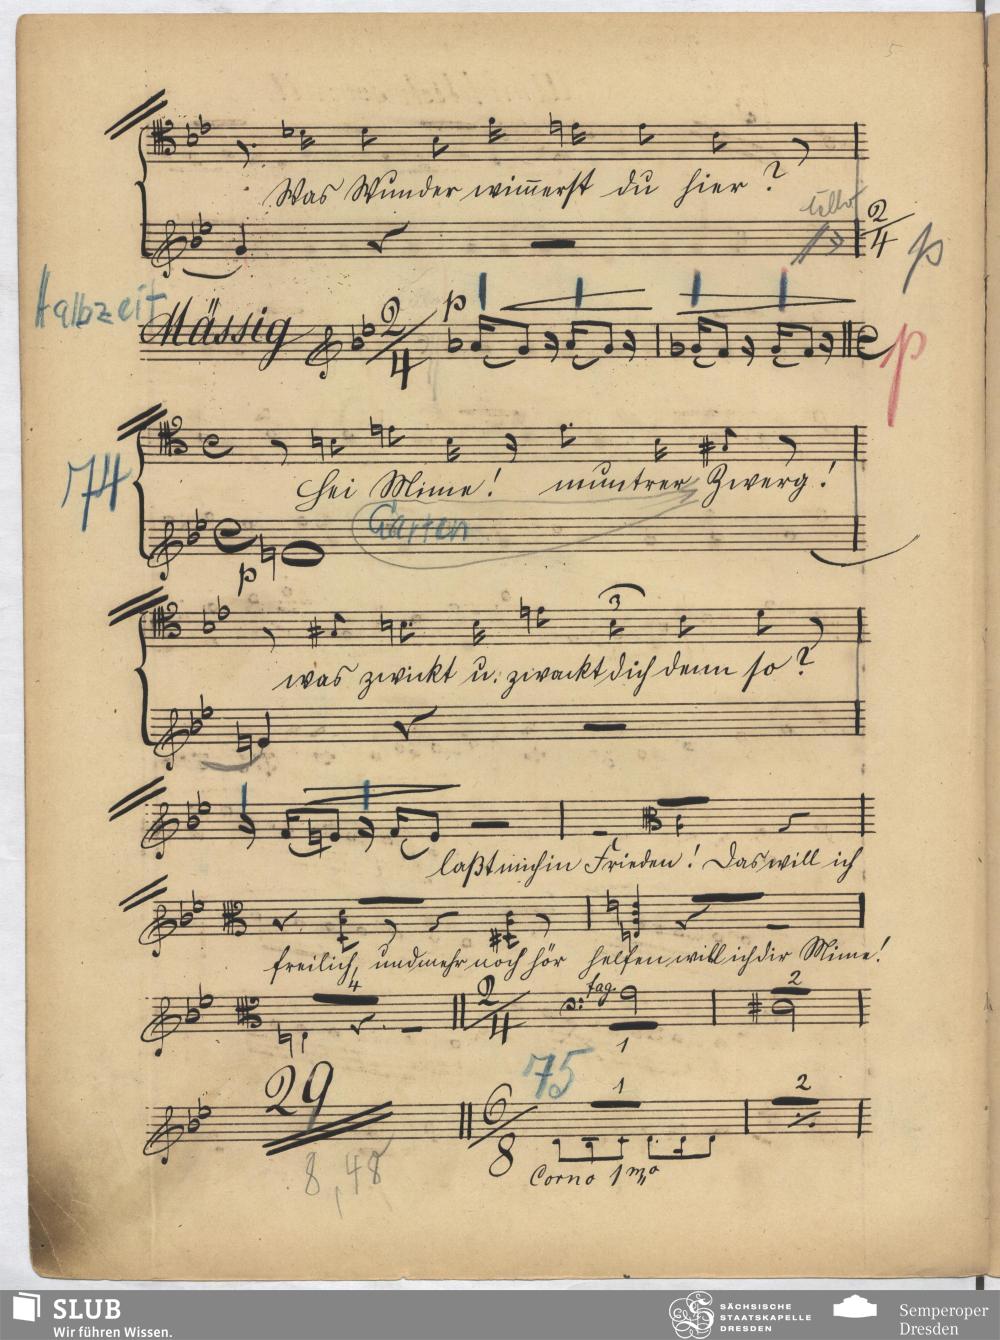 5
Was Wunder wim̄erst du hier?
2/4 p
Halbzeit
Mässig 2/4 p p
74
Hei Mime! muntrer Zwerg!
Garten
p
3
was zwickt u. zwackt dich denn so?
laßt mich in Frieden! Das will ich
freilich, und mehr noch hör helfen will ich dir Mime!
4 2/4 fag. 2
1
75
29 6/8 1 2
Corno 1mo
8, 48
SLUB
Wir führen Wissen.
SÄCHSISCHE
STAATSKAPELLE
DRESDEN
Semperoper
Dresden